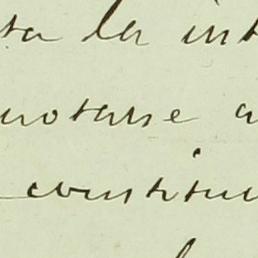 ta la int
notarse a
constitu